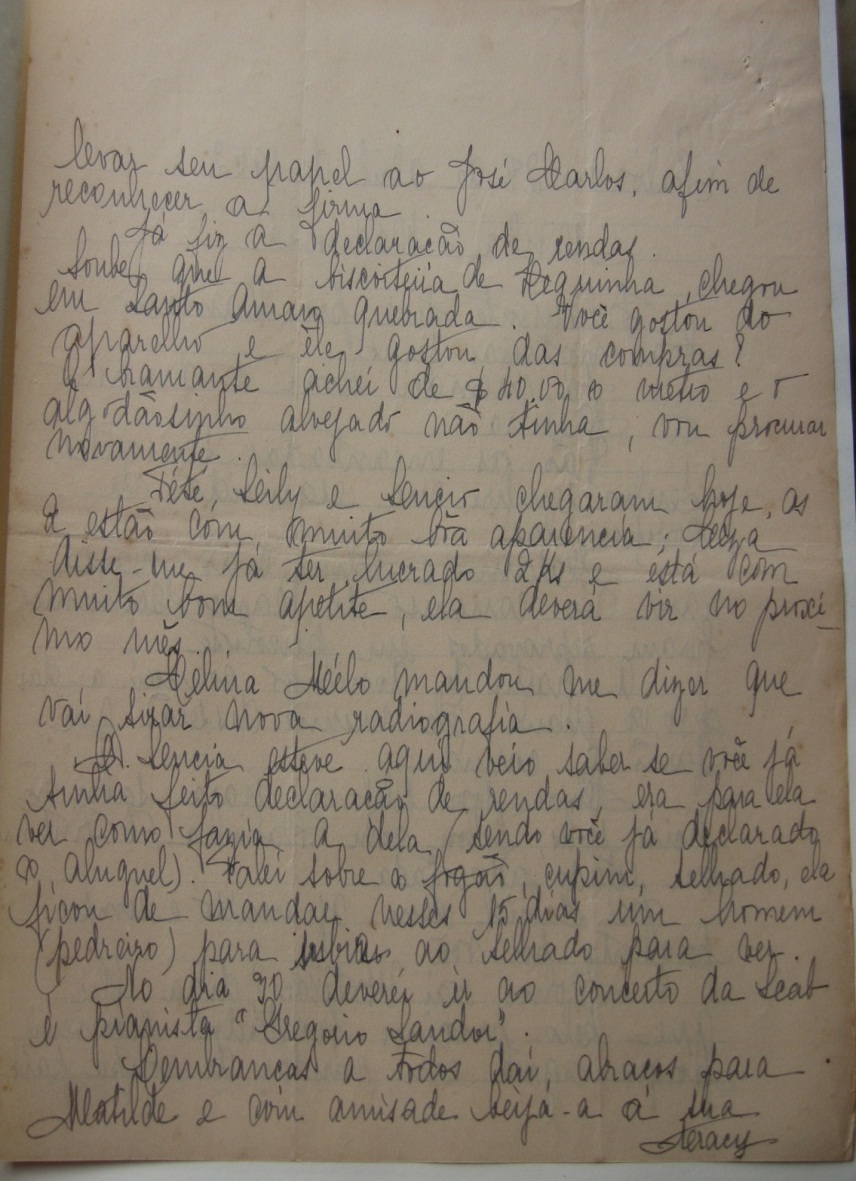 levar seu papel ao José Carlos, afim de
reconhecer a firma.
Já fiz a declaração de rendas.
Soube que a biscoiteira de Neguinha, chegou
em Santo Amaro quebrada. Você gostou do
aparelho e êle gostou das compras?
O bramante achei de $ 40,00 o metro e o
algodãosinho alvejado não tinha, vou procurar
novamente.
Tété, Leily e chegaram hoje, as
2 estão com muito bôa aparencia;
disse-me já ter lucrado 2Ks e está com
muito bom apetite, ela deverá vir no proxi-
mo mês.
Celina Mélo mandou me dizer que
vai tirar nova radiografia.
D. Sencia esteve aqui veio saber se você já
tinha feito declaração de rendas, era para ela
ver como fazia a dela (sendo você já declarado
o aluguel). Falei sobre o fogão, cupim, telhado, ela
ficou de mandar nestes 15 dias um homem
(pedreiro) para subir ao telhado para ver.
No dia 30 deverei ir ao concerto da Scab
é pianista "Gregorio Sandor".
Lembranças a todos daí, abraços para
Matilde e com amisade beija-a a sua